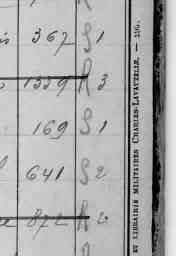 367 S 1
1339 R 3
169 S 1
641 S 2
872 R 2
ET LIBRAIRIE MILITAIRES CHARLES-LAVAUZELLE. —